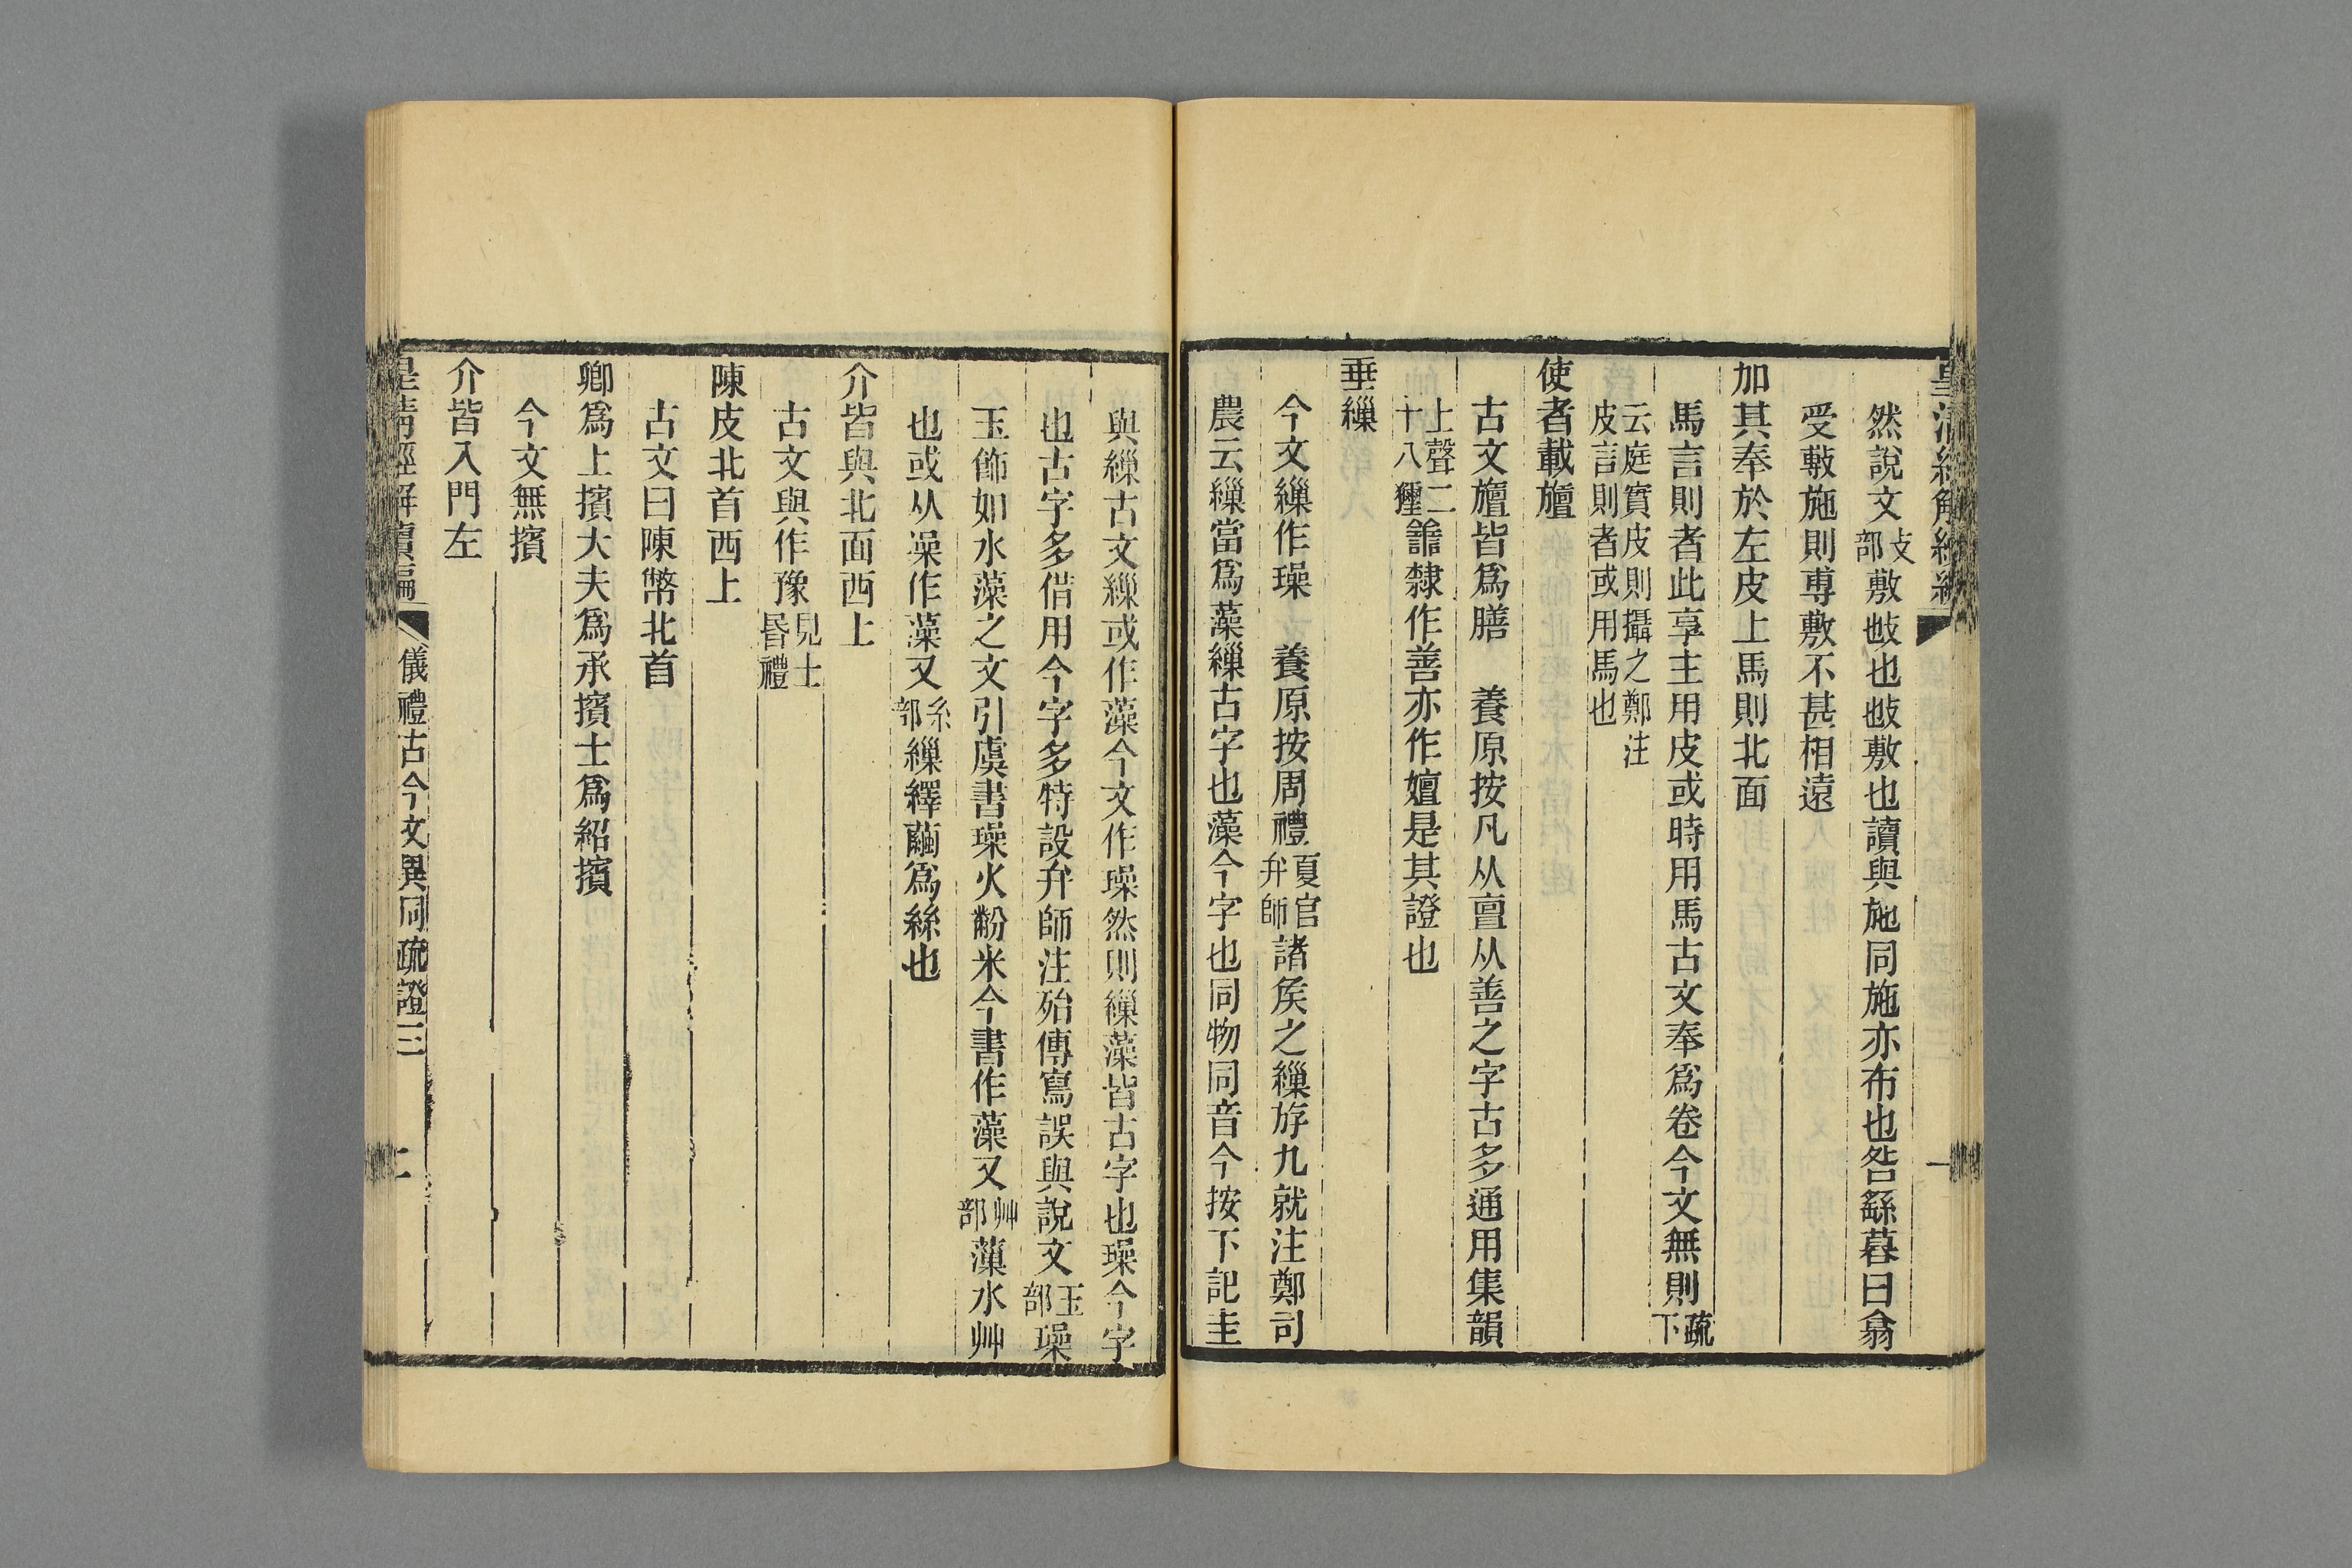 皇清經解續編
然說文攴部敷也㪵也㪵敷也讀與施同施亦布也咎繇暮曰翕
受敷施則尃敷不甚相遠
加其奉於左皮上馬則北面
馬言則者此享主用皮或時用馬古文奉爲卷今文無則疏下
云庭實皮則攝之鄭注
皮言則者或用馬也
使者載旜
古文旜皆爲膳　養原按凡从亶从善之字古多通用集韻
上聲二
十八獮譱隸作善亦作嬗是其證也
垂繅
今文繅作璪　養原按周禮夏官弁師諸矦之繅斿九就注鄭司
農云繅當爲藻繅古字也藻今字也同物同音今按下記圭
與繅古文繅或作藻今文作璪然則繅藻皆古字也璪今字
也古字多借用今字多特設弁師注殆傳寫誤與說文玉部璪
玉飾如水藻之文引虞書璪火黺米今書作藻又艸部薻水艸
也或从澡作藻又糸部繅繹繭爲絲也
介皆與北面西上
古文與作豫見士昬禮
陳皮北首西上
古文曰陳幣北首
卿爲上擯大夫爲承擯士爲紹擯
今文無擯
介皆入門左
皇清經解續編 儀禮古今文異同疏證三 二